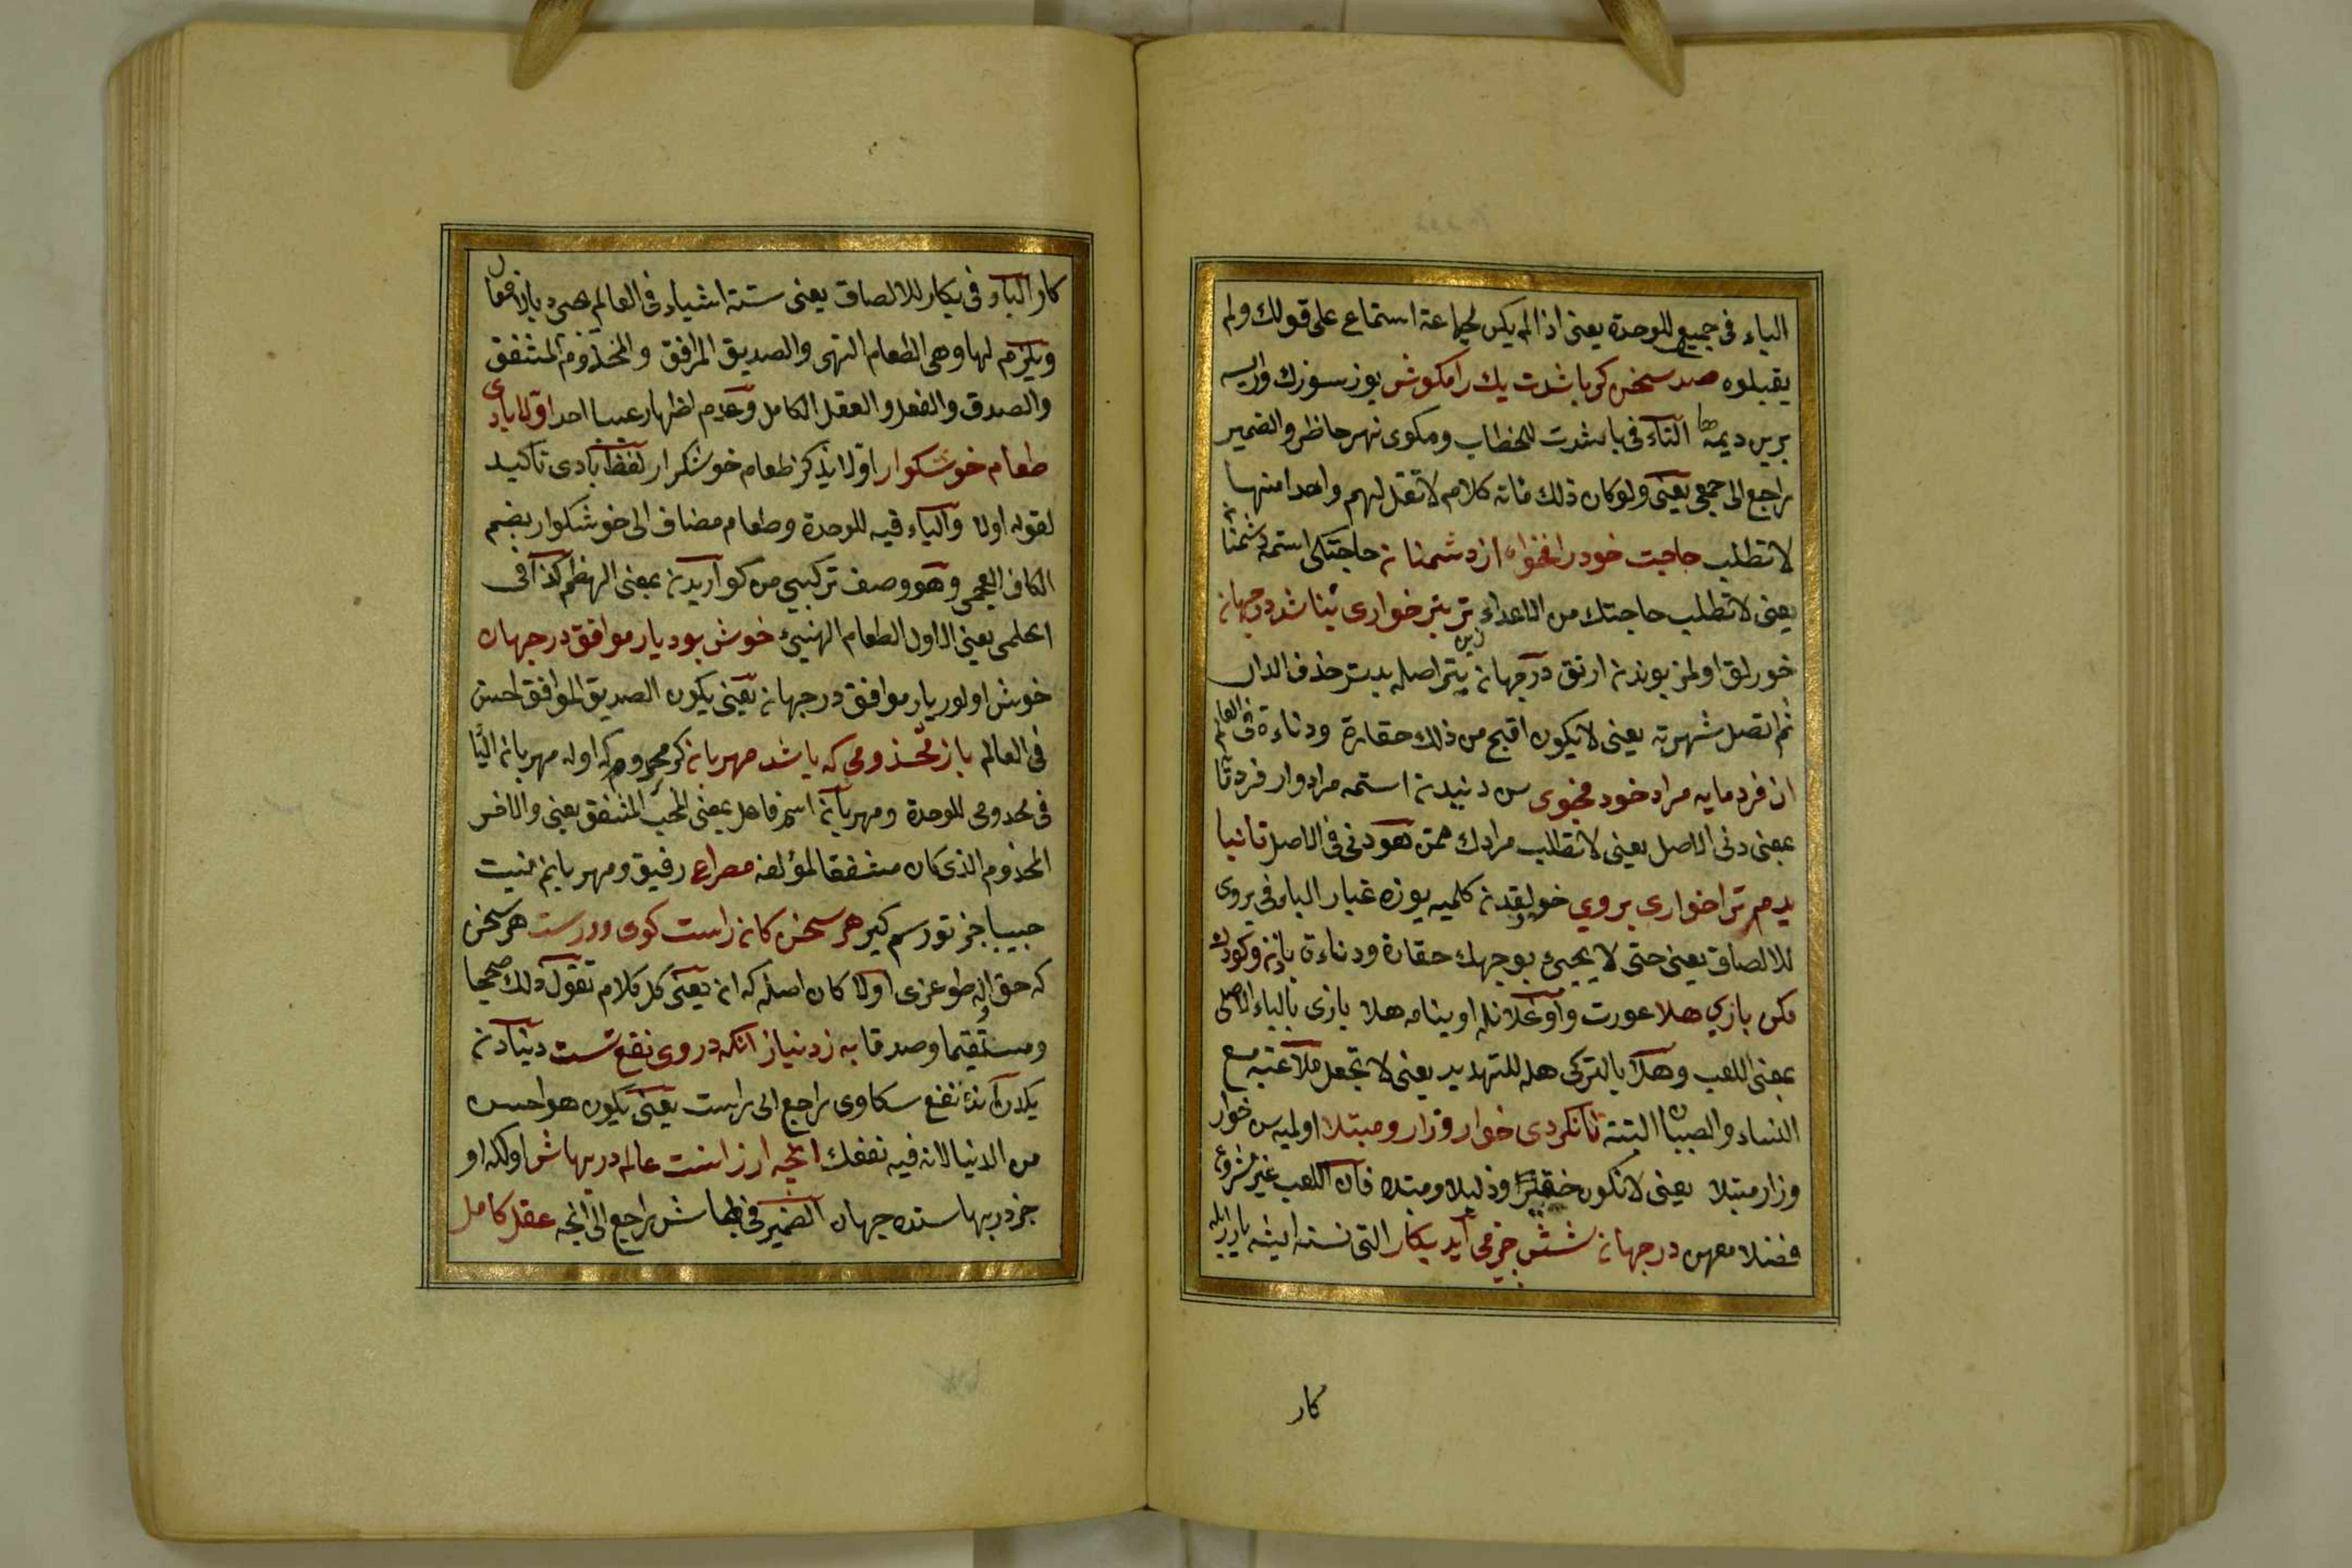 الياء فى جميع للوحدة يعنى اذا لم يكن لجماعة استماع على قولك ولم
يقبلوه صد سخن كر باشدت يك را مكوش يوز سوزك وارسه
برين ديمه التاء فى باشدت للخطاب ومكوى نهى حاظر والضمير
راجع الى جمعى يعنى ولو كان ذلك مائة كلام لا تقل لهم واحدا منها
لا تطلب حاجت خود را مخواه از دشمنان حاجتكى استمه دشمنا
يعنى لا تطلب حاجتك من الاعداء زين بتر خوارى نباشد در جهان
خورلق اولمز بوندن ارتق در جهان بتر اصله بدتر حذف الدال
ثم اتصل شهرته يعنى لا يكون اقبح من ذلك حقارة ودناءة فى العالم
از فرومايه مراد خود مجوى سن دنيدن استمه مرادوار فردتا
بمعنى دنى الاصل يعنى لا تطلب مرادك ممن هو دنى فى الاصل تا نيا
يدم ترا خوارى بروى خورلقدن كلميه يوزه غبار الباء فى بروى
للالصاق يعنى حتى لا يجيئ بوجهك حقارة ودناءة با زن وكودك
مكن بازى هلا عورت واوغلانله اوينامه هلا بازى بالياء الاصلى
بمعنى اللعب وهلا بالتركى هله للتهديد يعنى لا تجعل ملاعبة مع
النساء والصبيان البتة تا نكردى خوار وزار ومبتلا اولميه سن خوار
وزار مبتلا يعنى لا تكون حقيرا وذليلا ومبتلا فان اللعب غير مشروع
فضلا معهن در جهان شش چيز مى آيد بكار التى نسنه ايشه يارار
كار
كار الباء فى بكار للالصاق يعنى ستة اشياء فى العالم
ويلزم لها وهى الطعام النهى والصديق المرافق والمخذوم المشفق
والصدق والفعل والعقل الكامل وعدم اظهار عيب احد اولا بادى
طعام خوشكوار اولا يذكر طعام خوشكوار لفظ بادى تأكيد
لقوله اولا والياء فيه للوحدة وطعام مضاف الى خوشكوار بضم
الكاف العجمى وهو وصف تركيبى من كواريدن بمعنى الهظم كذا فى
الحلمى يعنى الاول الطعام الهنيئ خوش بود يار موافق در جهان
خوش اولور يار موافق در جهان يعنى يكون الصديق الموافق احسن
فى العالم باز مخذومى كه باشد مهربان كر مخدوم كه اوله مهربان الياء
فى مخدومى للوحدة ومهربان اسم فاعل بمعنى المحب المشفق يعنى والاخر
المخذوم الذى كان مشفقا لمؤلفه مصراع رفيق ومهربانم نيست
حبيبا جز تو رسم كير هر سخن كان راست كوى ودرست هر سخن
كه حق اله طوغرى اولا كان اصله كه ان يعنى كل كلام تقول ذلك صحيحا
ومستقيما وصدقا به ز دنيا ز آنكه در وى نفع تست دنيادن
يكدر آنده نفع سكاوى راجع الى راست يعنى يكون هو احسن
من الدنيا لانه فيه نفعك انچه ارزانست عالم در بهاش اولكه او
جز در بهاسنده جهان الضمير فى بهاش راجع الى انچه عقل كامل